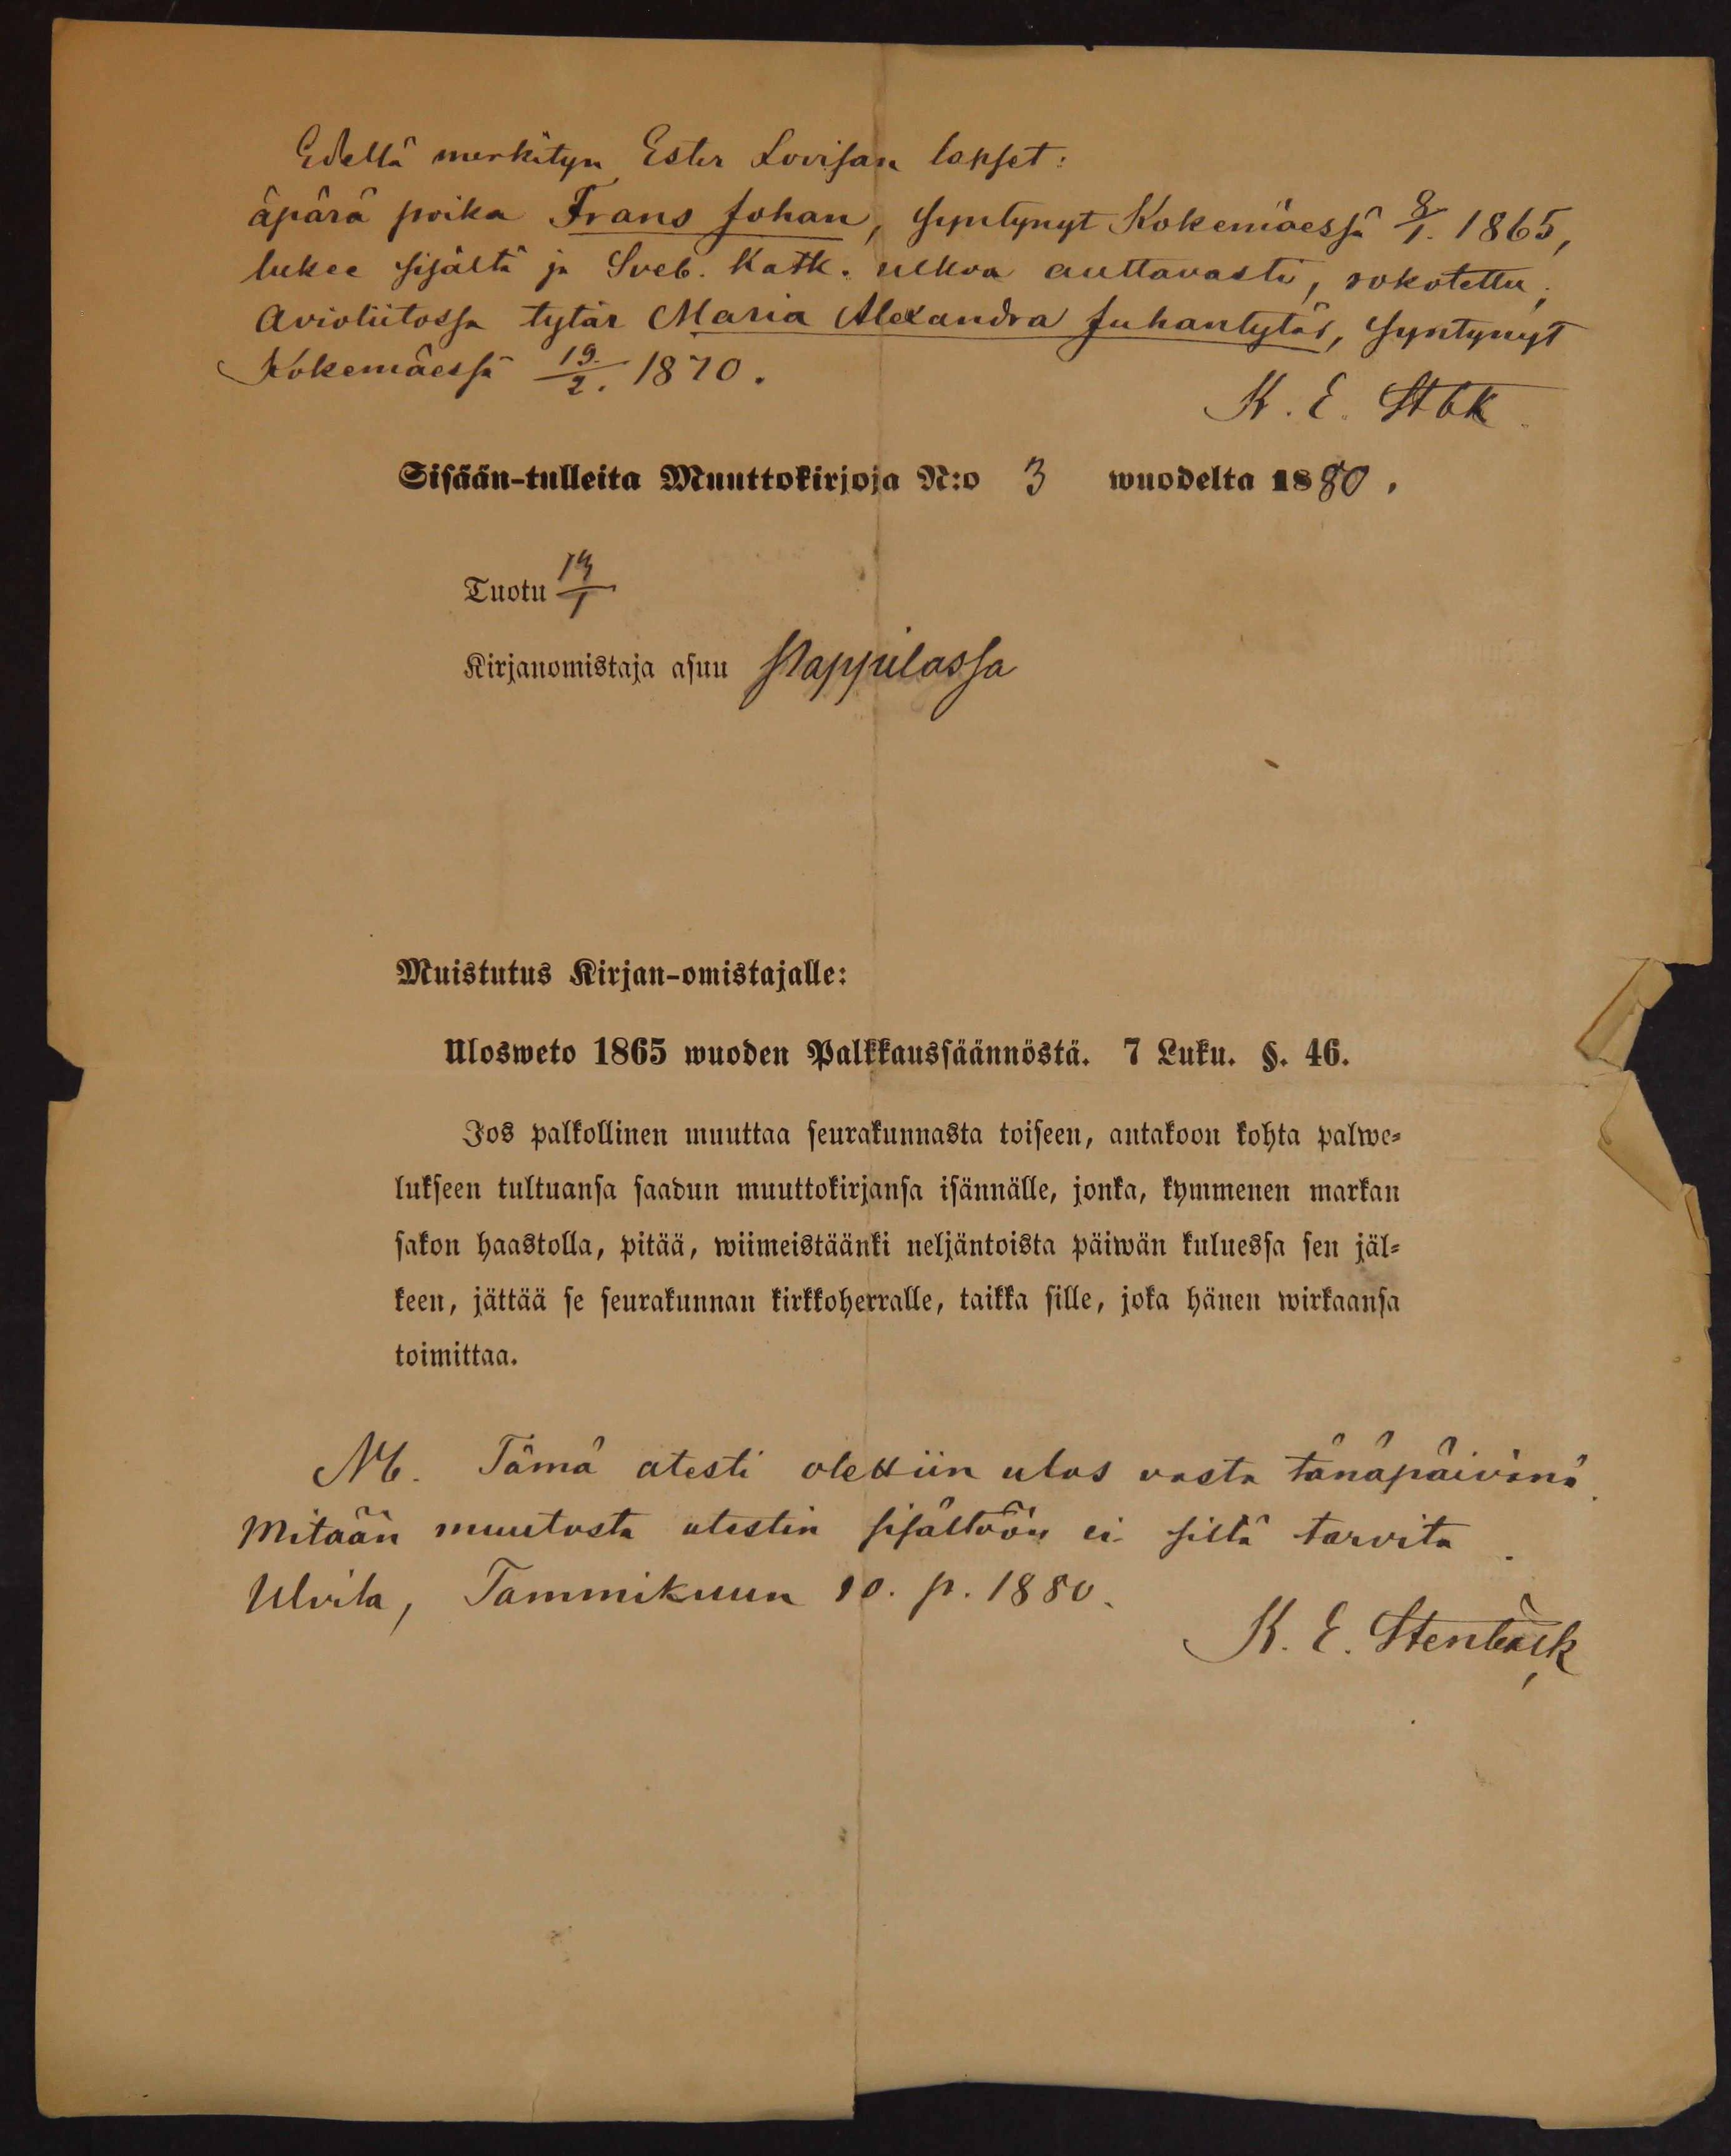 Edellä merkityn Ester Lovisan lapset:
äpärä poika Frans Johan, syntynyt Kokemäessä 8/1. 1865,
lukee sisältä ja Sveb. Katk. ulkoa auttavasti, rokotettu;
Avioliitossa tytär Maria Alexandra Juhantytär, syntynyt
Kokemäessä 19./2. 1870.
K. E. Stbk.
Sisään-tulleita Muuttokirjoja N:o 3 wuodelta 1880.
Tuotu /1
Kirjanomistaja asuu Pappilassa
Muistutus Kirjan-omistajalle:
Ulosweto 1865 wuoden Palkkaussäännöstä. 7 Luku. §. 46.
Jos palkollinen muuttaa seurakunnasta toiseen, antakoon kohta palwe-
lukseen tultuansa saadun muuttokirjansa isännälle, jonka, kymmenen markan
sakon haastolla, pitää, wiimeistäänki neljäntoista päiwän kuluessa sen jäl-
keen, jättää se seurakunnan kirkkoherralle, taikka sille, joka hänen wirkaansa
toimittaa.
NB. Tämä atesti otettiin ulos vasta tänäpäivänä.
Mitään muutosta atestin sisältöön ei siltä tarvita.
Ulvila, Tammikuun 10. p. 1880.
K. E. Stenbäck